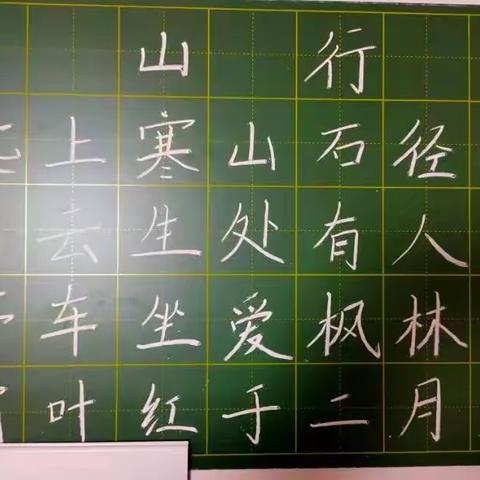 山行
上寒山石径
去生处有人
车坐爱枫林
叶红于二月